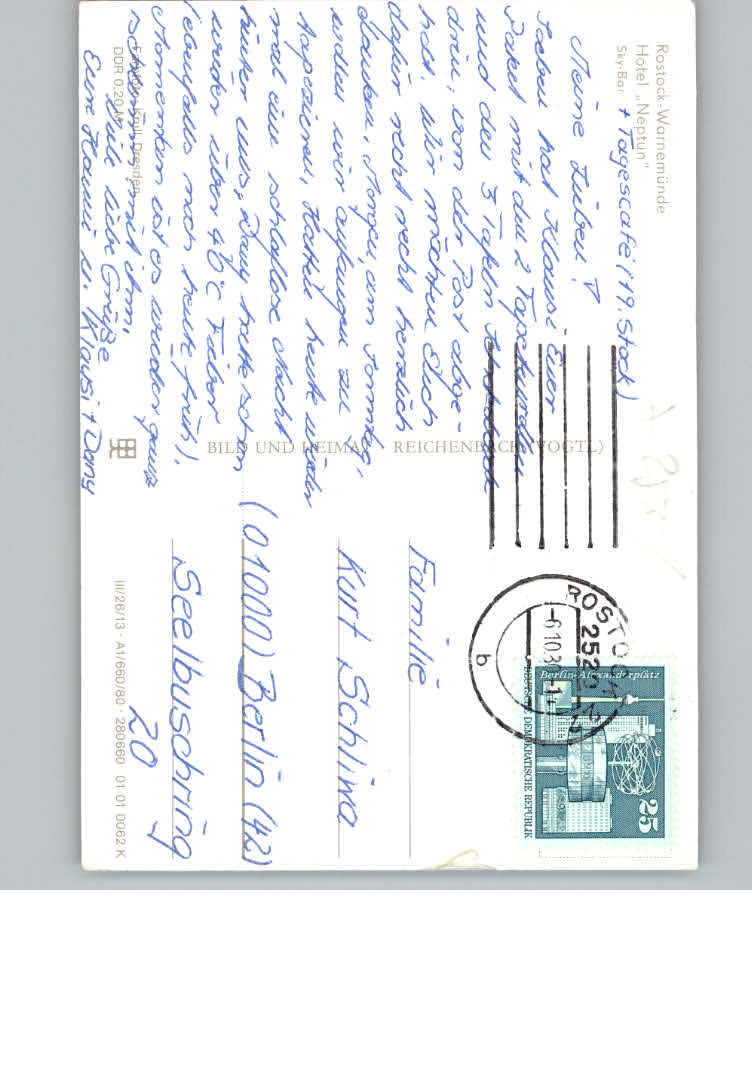 Rostock-Warnemünde
Hotel „Neptun"
Sky-Bar + Tagescafé (19. Stock)
Meine Lieben!
Soeben hat Klausi Euer
Paket mit den 2 Tapetenrollen
und den 3 Tafeln Schokolade
drin, von der Post abge-
holt. Wir möchten Euch
dafür recht recht herzlich
danken. Morgen, am Sonntag,
wollen wir anfangen zu
tapezieren. Hatten heute wieder
mal eine schlaflose Nacht
hinter uns, Dany hatte schon
wieder über 40°C Fieber
(ebenfalls noch heute früh).
Momentan ist es wieder ganz
schlimm mit ihm.
Viele liebe Grüße
Eure Hanni u. Klausi + Dany
Farbfoto: Krull, Dresden
DDR 0,20 M
BILD UND HEIMAT REICHENBACH (VOGTL)
III/26/13 · A1/660/80 · 280660 01 01 0062 K
ROSTOCK
2520
-6.10.80-1
b
Berlin-Alexanderplatz
25
DEUTSCHE DEMOKRATISCHE REPUBLIK
Familie
Kurt Schliwa
(01000) Berlin (42)
Seelbuschring
20